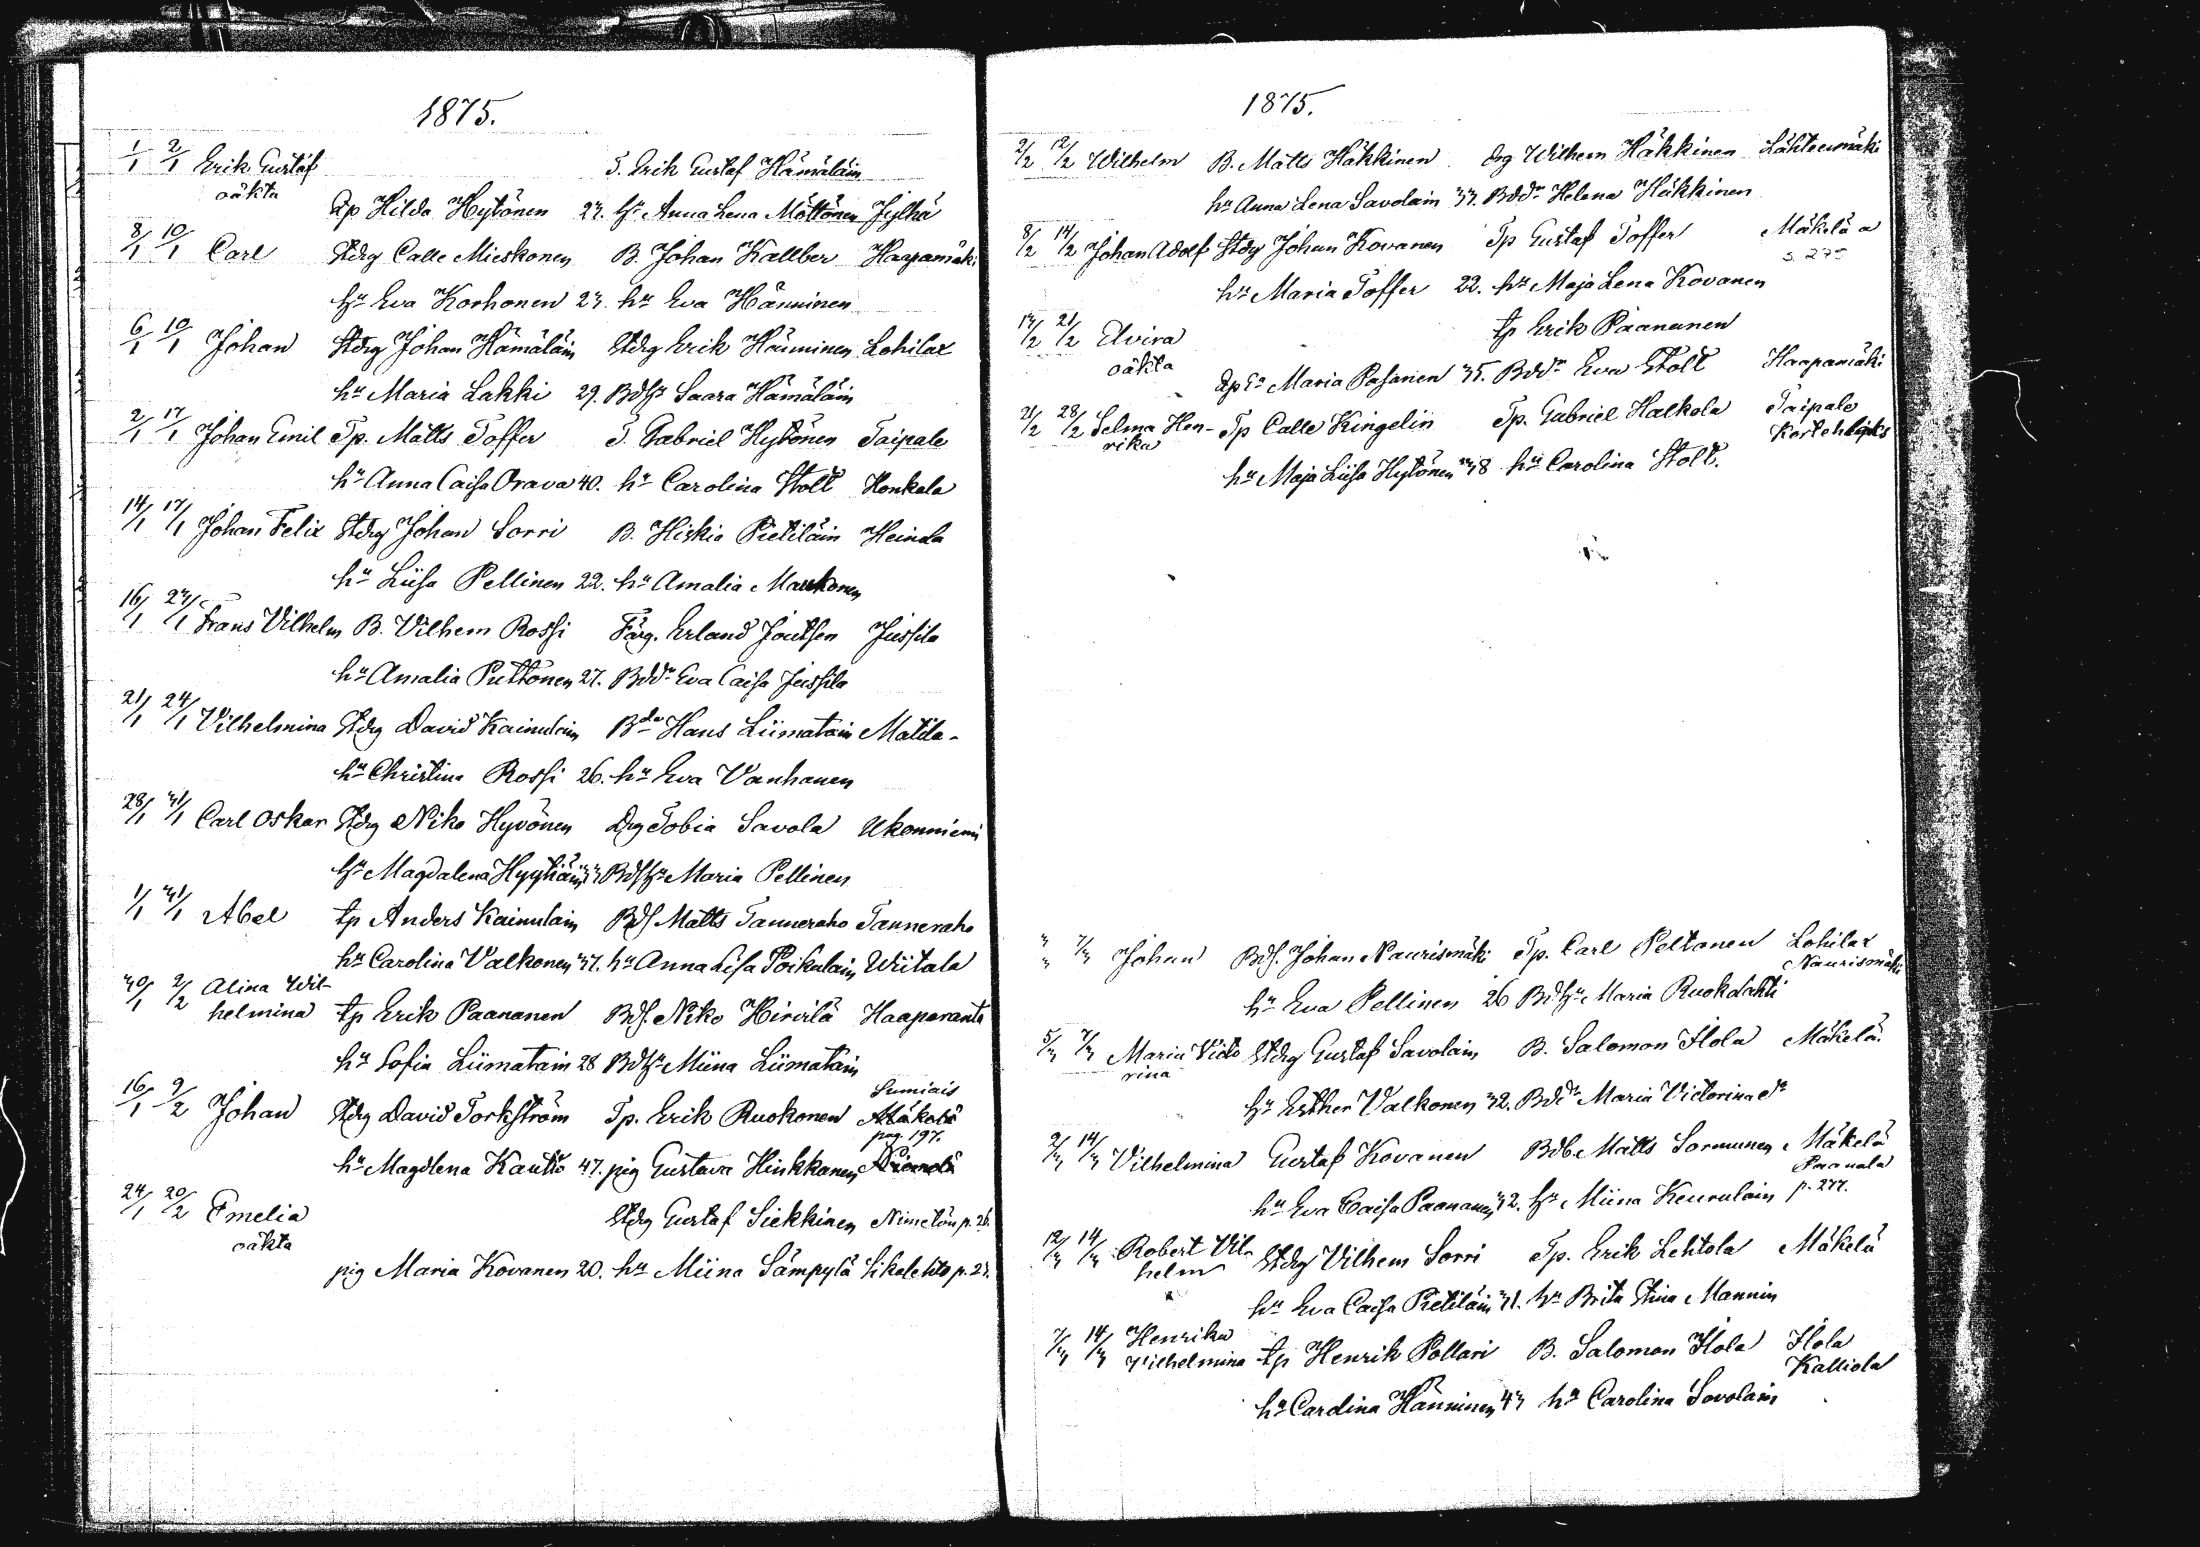 1875.
1/1 2/1 Erik Gustaf S. Erik Gustaf Hämäläin
oäkta
Qp Hilda Hytönen 23. hu Anna Lena Möttönen Jylhä
8/1 10/1 Carl Stdrg Calle Mieskonen B. Johan Kallber Haapamäki
hu Eva Korhonen 23. hu Eva Hänninen
6/1 10/1 Johan Stdrg Johan Hämäläin Stdrg Erik Hänninen Lohilax
hu Maria Lakki 29. Bdhu Saara Hämäläin
2/1 17/1 Johan Emil Tp. Matts Toffer T. Gabriel Hytönen Taipale
hu Anna Caisa Orava 40. hu Carolina Stolt Honkala
14/1 17/1 Johan Felix Stdrg Johan Sorri B. Hiskia Pietiläin Heinla
hu Liisa Pellinen 22. hu Amalia
16/1 23/1 Frans Vilhelm B. Vilhem Rossi Färg. Erland Joutsen Jussila
hu Amalia Puttonen 27. Bddr Eva Caisa Jussila
21/1 24/1 Vilhelmina Stdrg David Kainulain Bde Hans Liimatain Matila
hu Christina Rossi 26. hu Eva Vanhanen
28/1 31/1 Carl Oskar Stdrg Niko Hyvönen Drg Tobia Savola Ukonniemi
hu Magdalena Bdshu Maria Pellinen
1/1 31/1 Abel tp Anders Kainulain Bds Matts Tanneraho Tanneraho
hu Carolina Valkonen 37. hu Anna Lisa Poikulain Wiitala
30/1 2/2 Alina Wil-
helmina tp Erik Paananen Bds. Niko Hirvilä Haaparanta
hu Sofia Liimatain 28 Bdhu Miina Liimatain
Sumiais
16/1 9/2 Johan Stdrg David Torkström Tp. Erik Ruokonen Mäkelä
pag. 197.
hu Magdlena Kautto 47. pig Gustava Hinkkanen
24/1 20/2 Emelia Stdrg Gustaf Siekkinen Nimetön p. 26.
oäkta
pig Maria Kovanen 20. hu Miina Sämpylä Sikalehto p. 23.
1875.
2/2 12/2 Wilhelm B. Matts Häkkinen drg Wilhem Häkkinen Lähteenmäki
hu Anna Lena Savolain 33. Bddr Helena Häkkinen
8/2 14/2 Johan Adolf Stdrg Johan Kovanen Tp Gustaf Toffer Mäkelä a
s. 275
hu Maria Toffer 22. hu Maja Lena Kovanen
13/2 21/2 Elvira tp Erik Paananen
oäkta
Qp Ea Maria Pasanen 35. Bddr Eva Stolt Haapamäki
21/2 28/2 Selma Hen- Tp Calle Kingelin Tp. Gabriel Halkola Taipale
rika
hu Maja Liisa Hytönen 38 hu Carolina Stolt.
3/3 7/3 Johan Bds. Johan Naurismäki Tp. Carl Peltonen Lohilax
Naurismäki
hu Eva Pellinen 26 Bdhu Maria Ruokolahti
5/3 7/3 Maria Victo Stdrg Gustaf Savolain B. Salomon Ilola Mäkelä.
rina
hu Esther Valkonen 32. Bddr Maria Victorina do
9/3 14/3 Vilhelmina Gustaf Kovanen Bdb. Matts Sormunen Mäkelä
Paanala
hu Eva Caisa Paananen 32. hu Miina Keurulain p. 277.
12/3 14/3 Robert Vil- Stdrg Vilhem Sorri Tp. Erik Lehtola Mäkelä
helm
hu Eva Caisa Pietiläin 31. hu Brita Stina Mannin
7/3 14/3 Henrika
Vilhelmina tp Henrik Pollari B. Salomon Ilola Ilola
Kalliola
hu Carolina Hänninen 43 hu Carolina Savolain